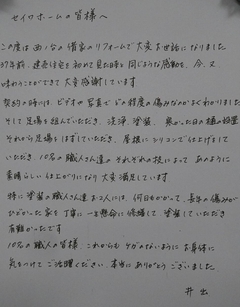 セイワホームの皆様へ
この度は西ノ谷の借家のリフォームで大変お世話になりました
37年前、建売住宅を初めて見た時と同じような感動を、今、又
味わうことができて大変感謝しています
契約の時は、ビデオや写真でどの程度の傷みなのかよくわかりました
そして足場を組んでいただき、洗浄、塗装、
それから足場をはずしていただき、屋根にシリコンで仕上げをして
いただき、10名の職人さん達のそれぞれの技によって、あのように
素晴らしい仕上がりになり大変満足しています
特に塗装の職人さん達お2人には、何日もかかって、長年の傷みが
ひどかった家を丁寧に一生懸命に修繕して塗装していただき
有難かったです
10名の職人の皆様、これからもケガのないようにお身体に
気をつけてご活躍ください。本当にありがとうございました
井出